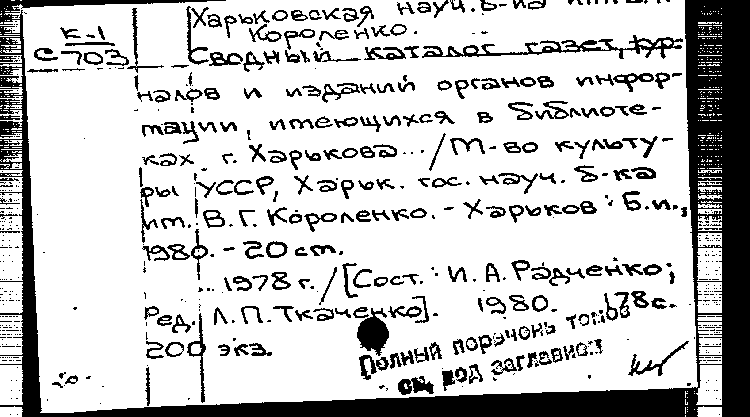 Харьковская науч. б-ка им. В.Г.
К-1 Короленко.
С 703 Сводный каталог газет, жур-
налов и изданий органов инфор-
мации, имеющихся в библиоте-
ках г. Харькова.../М-во культу-
ры УССР, Харьк. гос. науч. б-ка
им. В.Г. Короленко. - Харьков : Б.и.,
1980. - 20 см.
... 1978 г. / [Сост.: И.А. Радченко;
Ред. Л.П. Ткаченко]. 1980. 178 с.
200 экз.
Полный перечень томов
см. под заглавием